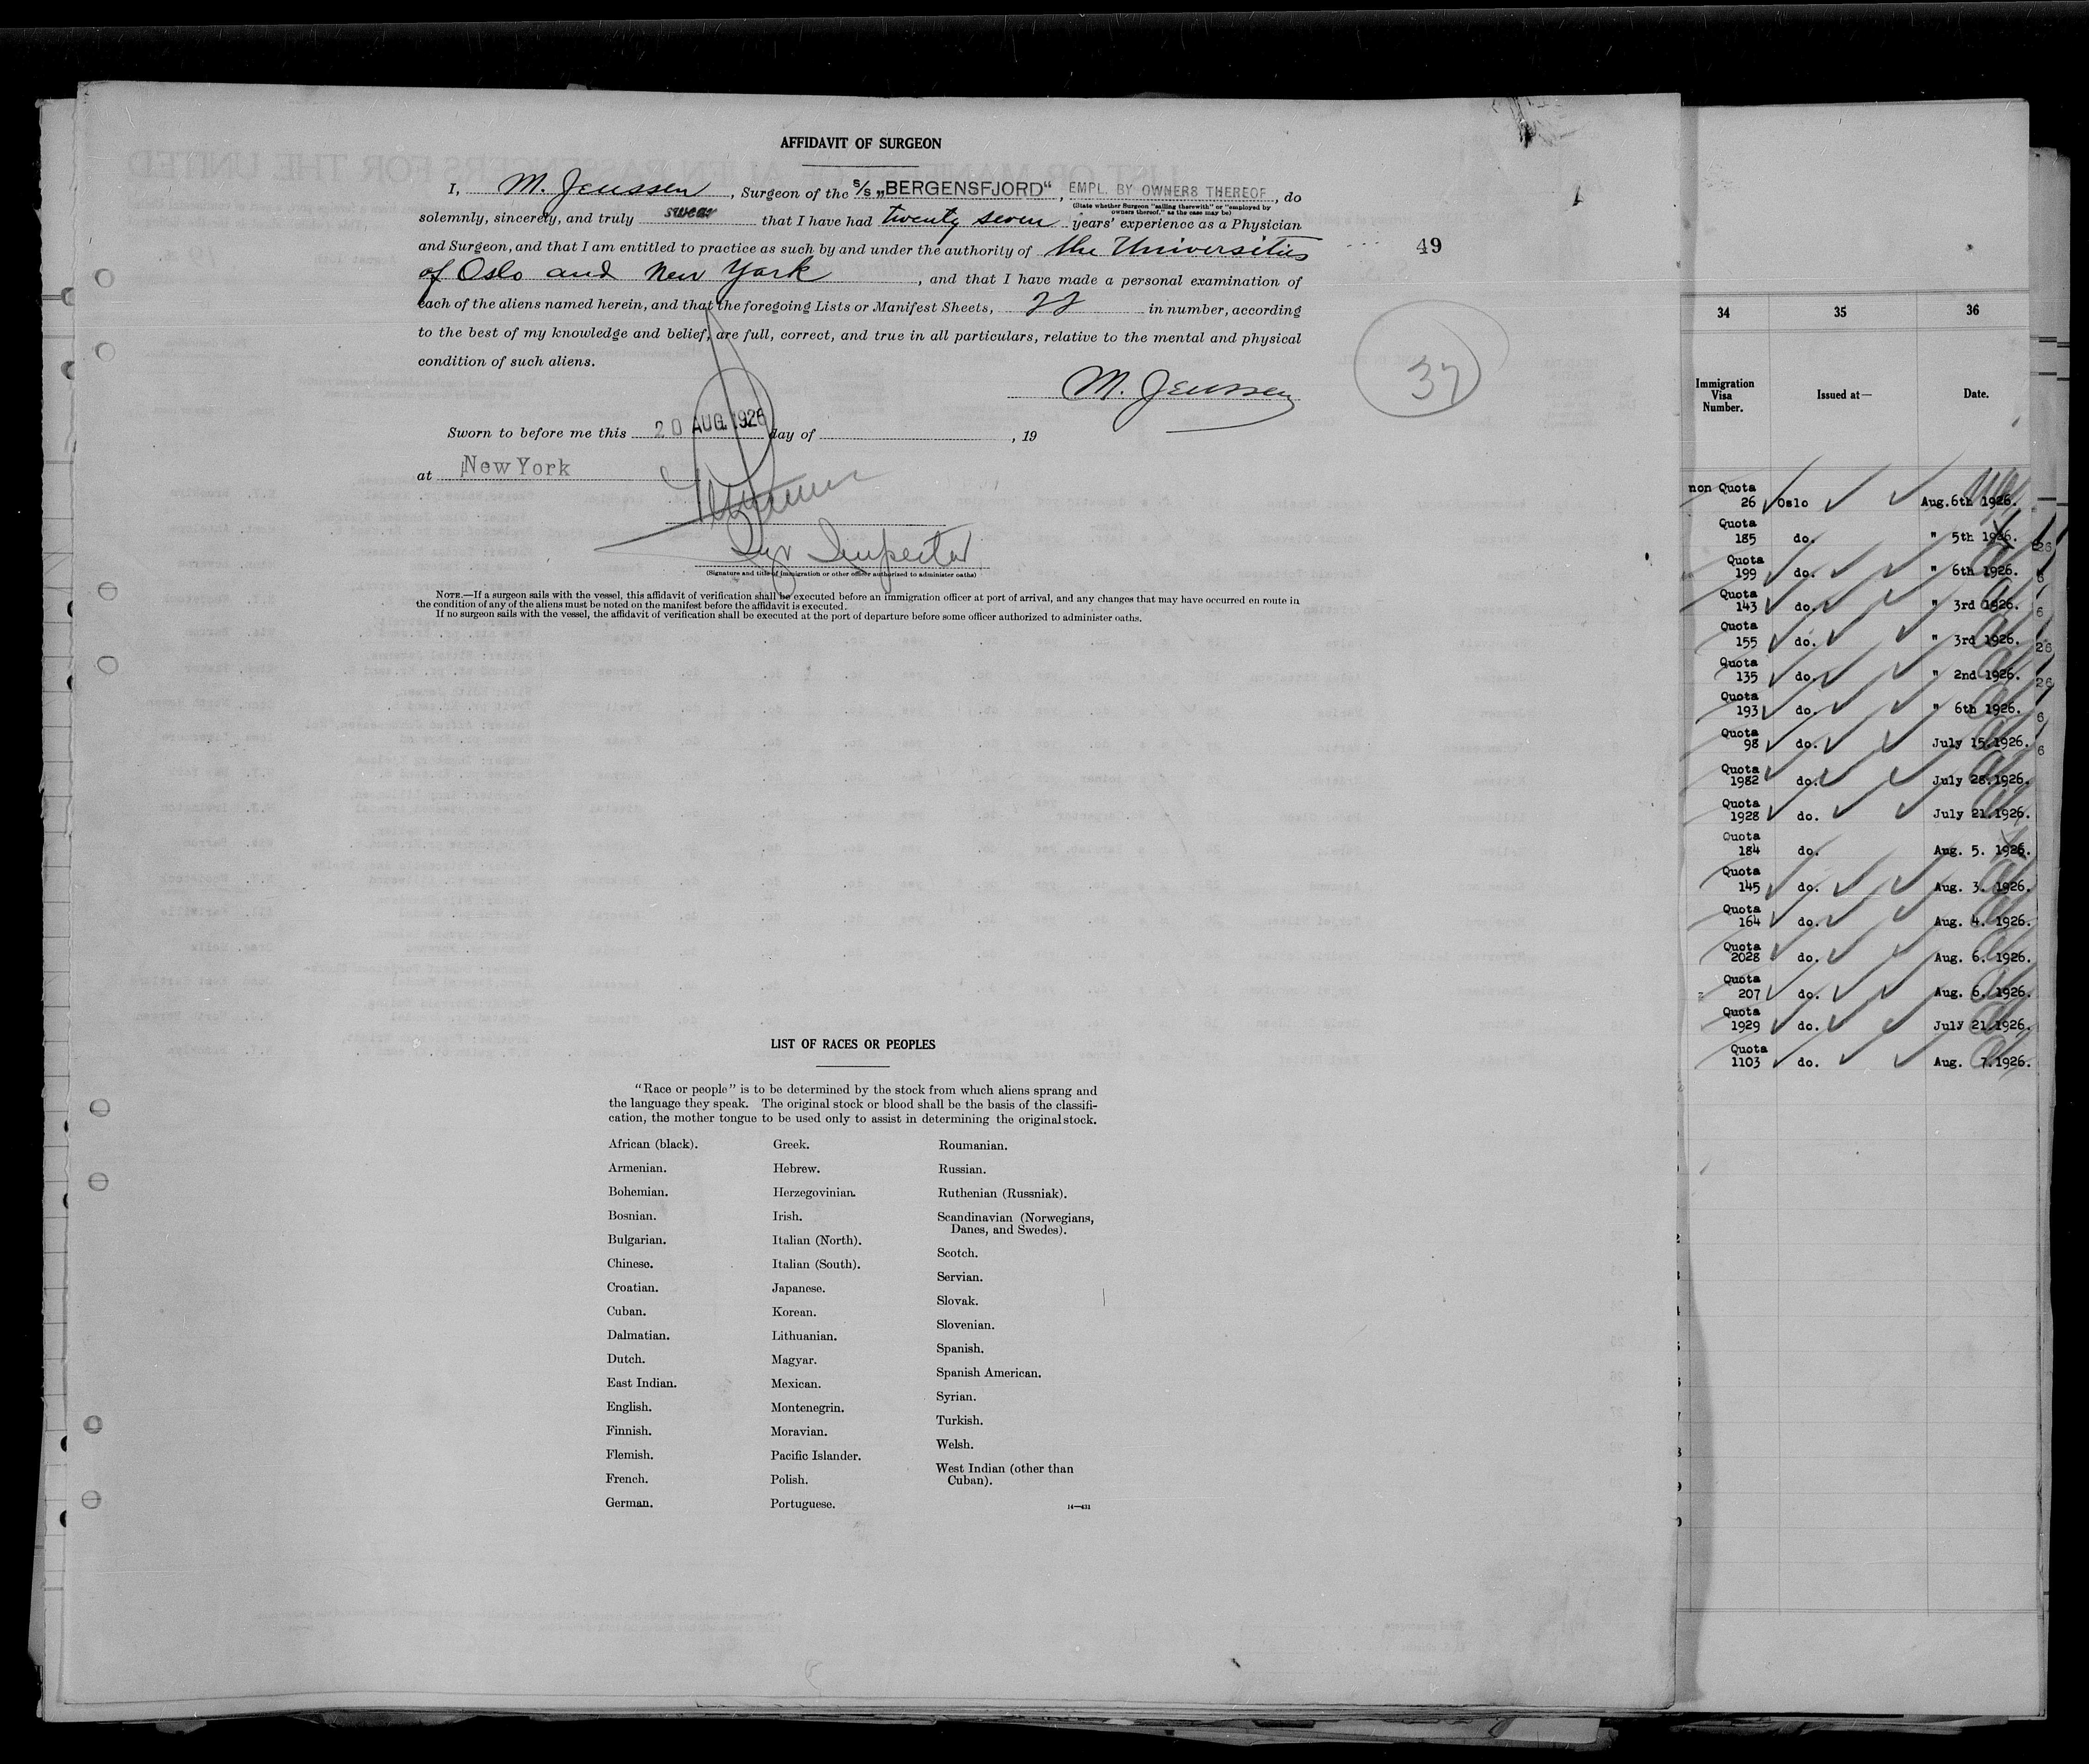 AFFIDAVIT OF SURGEON
I, M. Jenssen, Surgeon of the S/S „BERGENSFJORD“, EMPL. BY OWNERS THEREOF, do
(State whether Surgeon "sailing therewith" or "employed by
owners thereof," as the case may be)
solemnly, sincerely, and truly swear that I have had twenty seven years' experience as a Physician
and Surgeon, and that I am entitled to practice as such by and under the authority of the Universities
of Oslo and New York, and that I have made a personal examination of
each of the aliens named herein, and that the foregoing Lists or Manifest Sheets, 22 in number, according
to the best of my knowledge and belief, are full, correct, and true in all particulars, relative to the mental and physical
condition of such aliens.
49
M. Jenssen
Sworn to before me this 20 AUG. 1926 day of , 19
at New York
Inspector
(Signature and title of immigration or other officer authorized to administer oaths)
NOTE.—If a surgeon sails with the vessel, this affidavit of verification shall be executed before an immigration officer at port of arrival, and any changes that may have occurred en route in
the condition of any of the aliens must be noted on the manifest before the affidavit is executed.
If no surgeon sails with the vessel, the affidavit of verification shall be executed at the port of departure before some officer authorized to administer oaths.
LIST OF RACES OR PEOPLES
"Race or people" is to be determined by the stock from which aliens sprang and
the language they speak. The original stock or blood shall be the basis of the classifi-
cation, the mother tongue to be used only to assist in determining the original stock.
African (black).
Armenian.
Bohemian.
Bosnian.
Bulgarian.
Chinese.
Croatian.
Cuban.
Dalmatian.
Dutch.
East Indian.
English.
Finnish.
Flemish.
French.
German.
Greek.
Hebrew.
Herzegovinian.
Irish.
Italian (North).
Italian (South).
Japanese.
Korean.
Lithuanian.
Magyar.
Mexican.
Montenegrin.
Moravian.
Pacific Islander.
Polish.
Portuguese.
Roumanian.
Russian.
Ruthenian (Russniak).
Scandinavian (Norwegians,
Danes, and Swedes).
Scotch.
Servian.
Slovak.
Slovenian.
Spanish.
Spanish American.
Syrian.
Turkish.
Welsh.
West Indian (other than
Cuban).
14—431
34 35 36
Immigration
Visa
Number.
Issued at—
Date.
non Quota
26 Oslo Aug.6th 1926.
Quota
185 do. " 5th 1926.
Quota
199 do. " 6th 1926.
Quota
143 do. " 3rd 1926.
Quota
155 do. " 3rd 1926.
Quota
135 do. " 2nd 1926.
Quota
193 do. " 6th 1926.
Quota
98 do. July 15.1926.
Quota
1982 do. July 28.1926.
Quota
1928 do. July 21.1926.
Quota
184 do. Aug. 5. 1926.
Quota
145 do. Aug. 3. 1926.
Quota
164 do. Aug. 4. 1926.
Quota
2028 do. Aug. 6. 1926.
Quota
207 do. Aug. 6. 1926.
Quota
1929 do. July 21.1926.
Quota
1103 do. Aug. 7.1926.